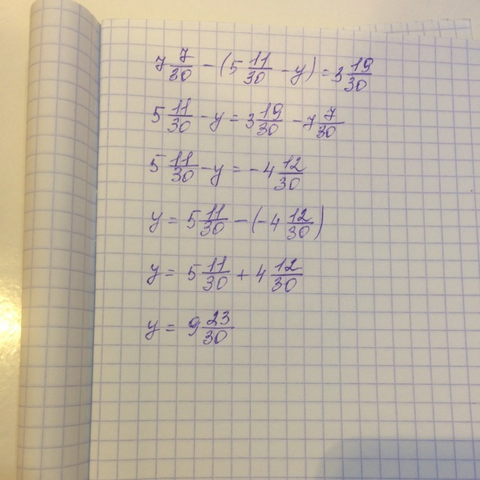 7 7/30 - (5 11/30 - y) = 3 19/30
5 11/30 - y = 3 19/30 - 7 7/30
5 11/30 - y = -4 12/30
y = 5 11/30 - (-4 12/30)
y = 5 11/30 + 4 12/30
y = 9 23/30